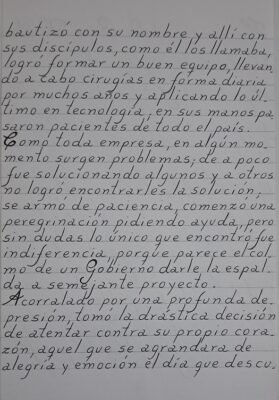 bautizó con su nombre y allí con
sus discípulos, como él los llamaba,
logró formar un buen equipo, llevan
do a cabo cirugías en forma diaria
por muchos años y aplicando lo úl-
timo en tecnología, en sus manos pa
saron pacientes de todo el país.
Como toda empresa, en algún mo-
mento surgen problemas; de a poco
fue solucionando algunos y a otros
no logró encontrarles la solución;
se armó de paciencia, comenzó una
peregrinación pidiendo ayuda, pero
sin dudas lo único que encontró fue
indiferencia, porque parece el col-
mo de un Gobierno darle la espal-
da a semejante proyecto.
Acorralado por una profunda de-
presión, tomó la drástica decisión
de atentar contra su propio cora-
zón, aquel que se agrandara de
alegría y emoción el día que descu-